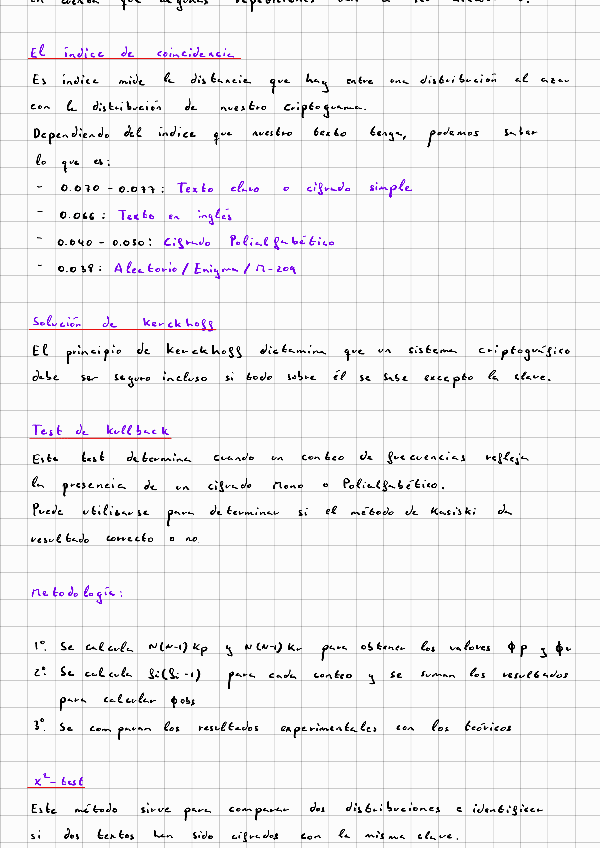 en cuenta que algunas repeticiones
El índice de coincidencia
Es índice mide la distancia que hay entre una distribución al azar
con la distribución de nuestro criptograma.
Dependiendo del índice que nuestro texto tenga, podemos saber
lo que es:
- 0.070 - 0.077: Texto claro o cifrado simple
- 0.066: Texto en inglés
- 0.040 - 0.050: Cifrado Polialfabético
- 0.038: Aleatorio / Enigma / M-209
Solución de Kerckhoff
El principio de Kerckhoff dictamina que un sistema criptográfico
debe ser seguro incluso si todo sobre él se sabe excepto la clave.
Test de Kullback
Este test determina cuando un conteo de frecuencias refleja
la presencia de un cifrado Mono o Polialfabético.
Puede utilizarse para determinar si el método de Kasiski da
resultado correcto o no
Metodología:
1º. Se calcula N(N-1)Kp y N(N-1)Kr para obtener los valores ϕp y ϕr
2º. Se calcula fi(fi-1) para cada conteo y se suman los resultados
para calcular ϕobs
3º. Se comparan los resultados experimentales con los teóricos
x²-test
Este método sirve para comparar dos distribuciones e identificar
si dos textos han sido cifrados con la misma clave.